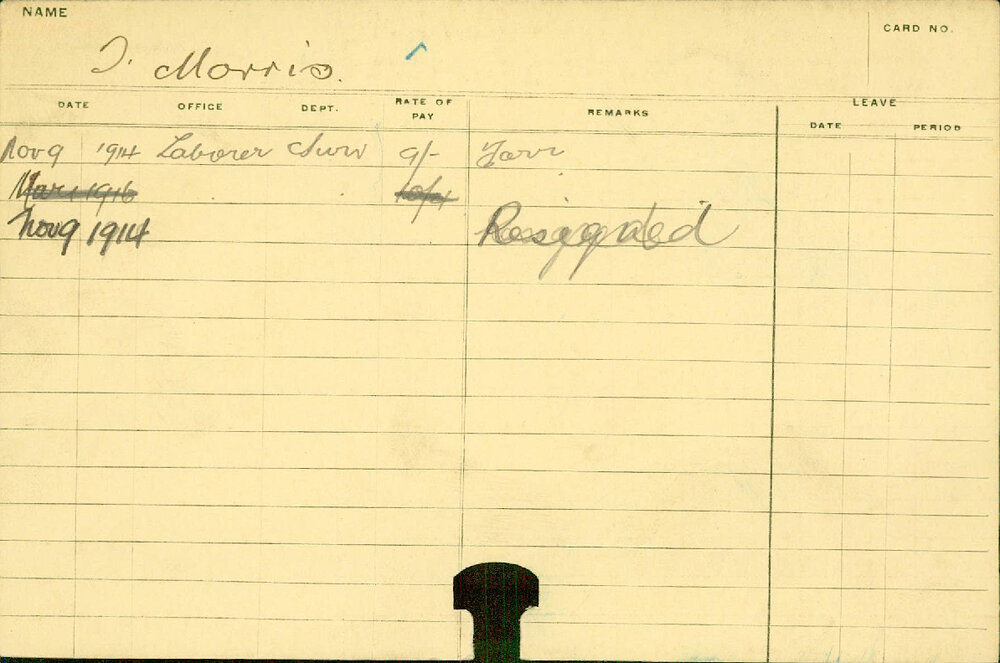 NAME
CARD NO.
T. Morris.
DATE OFFICE DEPT. RATE OF PAY REMARKS LEAVE
DATE PERIOD
Nov 9 1914 Laborer Surv 9/-
Mar 1916 10/-
Nov 9 1914 Resigned